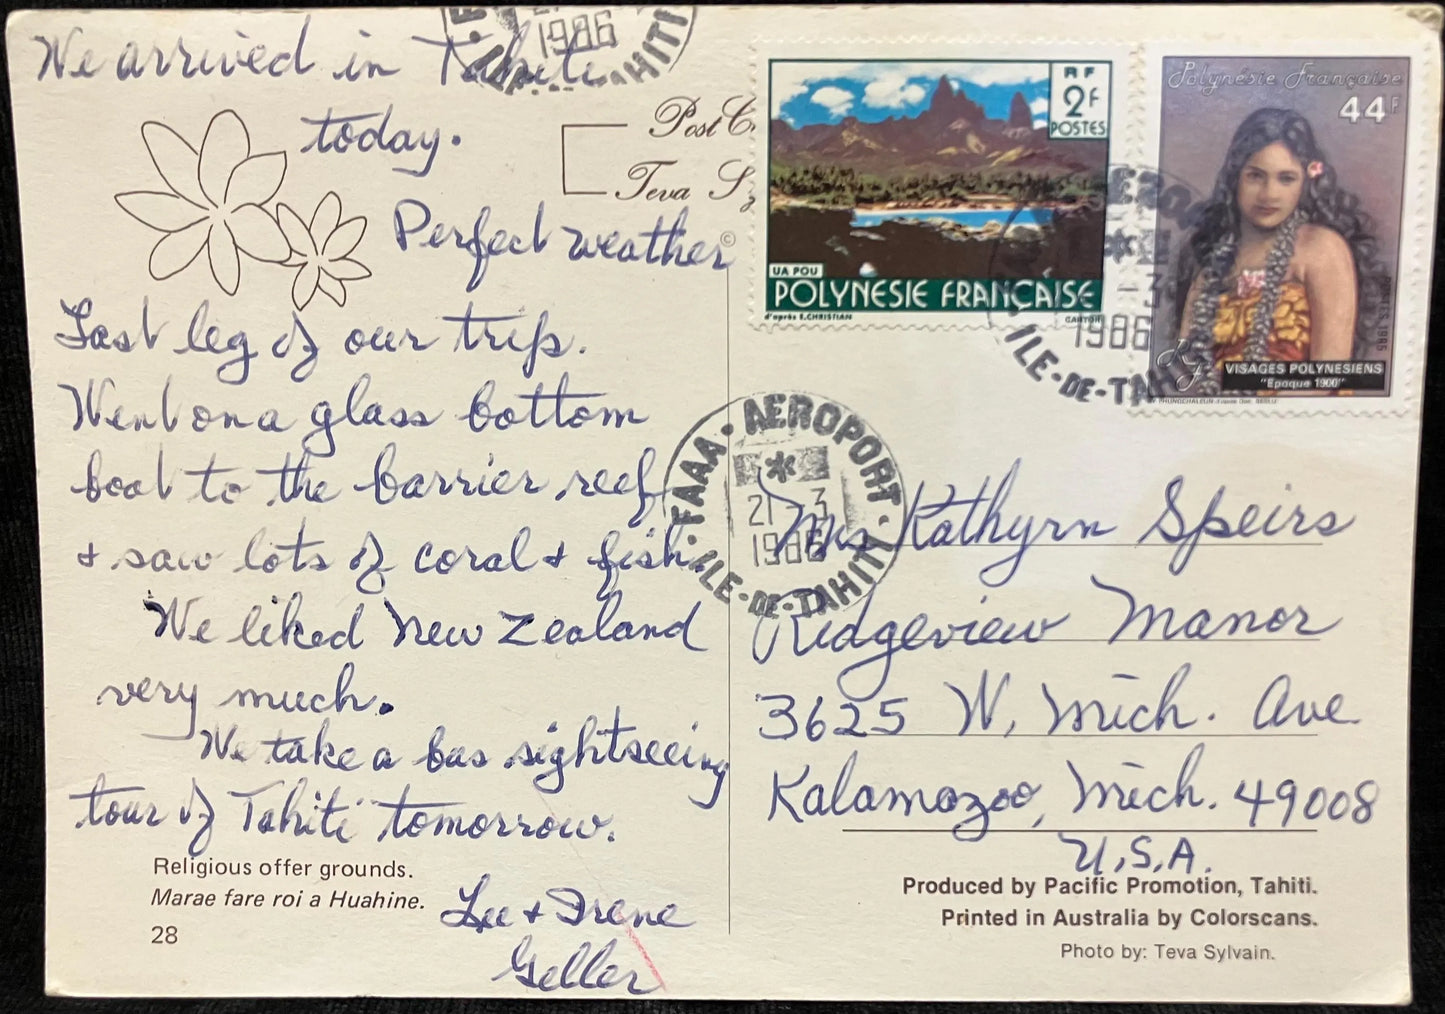 We arrived in Tahiti
today.
Perfect weather
Last leg of our trip.
Went on a glass bottom
boat to the barrier reef
& saw lots of coral & fish.
We liked New Zealand
very much.
We take a bus sightseeing
tour of Tahiti tomorrow.
Lee & Irene
Geller
Religious offer grounds.
Marae fare roi a Huahine.
28
Post C
Teva S
©
1986
TAHITI
RF
2F
POSTES
UA POU
POLYNESIE FRANÇAISE
d'après E.CHRISTIAN
CARTOR
Polynésie Française
44F
POSTES 1986
RF
VISAGES POLYNESIENS
"Epoque 1900"
AEROPORT
3
1986
ILE-DE-TAHITI
FAAA · AEROPORT ·
21 3
1986
ILE-DE-TAHITI
Mrs Kathyrn Speirs
Ridgeview Manor
3625 W. Mich. Ave
Kalamazoo, Mich. 49008
U.S.A.
Produced by Pacific Promotion, Tahiti.
Printed in Australia by Colorscans.
Photo by: Teva Sylvain.